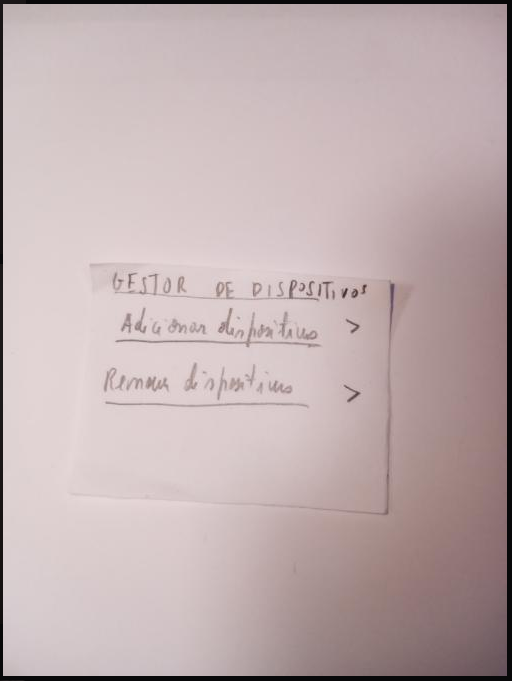 GESTOR DE DISPOSITIVOS
Adicionar dispositivos >
Remover dispositivos >